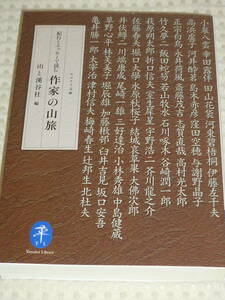 小泉八雲 幸田露伴 田山花袋 河東碧梧桐 伊藤左千夫
高浜虚子 河井酔茗 島木赤彦 窪田空穂 与謝野晶子
正宗白鳥 永井荷風 斎藤茂吉 志賀直哉 高村光太郎
竹久夢二 飯田蛇笏 若山牧水 石川啄木 谷崎潤一郎
萩原朔太郎 折口信夫 室生犀星 宇野浩二 芥川龍之介
佐藤春夫 堀口大學 水原秋桜子 結城哀草果 大佛次郎
井伏鱒二 川端康成 尾崎一雄 三好達治 小林秀雄 中島健蔵
草野心平 林芙美子 堀辰雄 加藤楸邨 臼井吉見 坂口安吾
亀井勝一郎 太宰治 津村信夫 梅崎春生 辻邦生 北杜夫
ヤマケイ文庫
紀行とエッセーで読む
作家の山旅
山と溪谷社 編
Yamakei Library